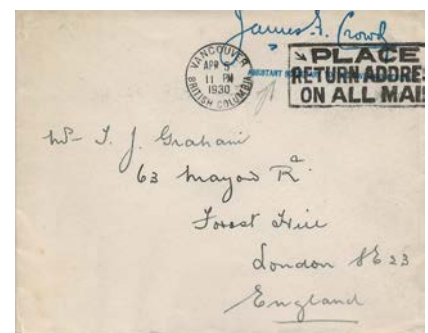 James F. Crowd
VANCOUVER
APR 5
11 PM
1930
BRITISH COLUMBIA
PLACE
RETURN ADDRES
ON ALL MAI
Mr T. J. Graham
63 Mayow Rd.
Forest Hill
London SE 23
England